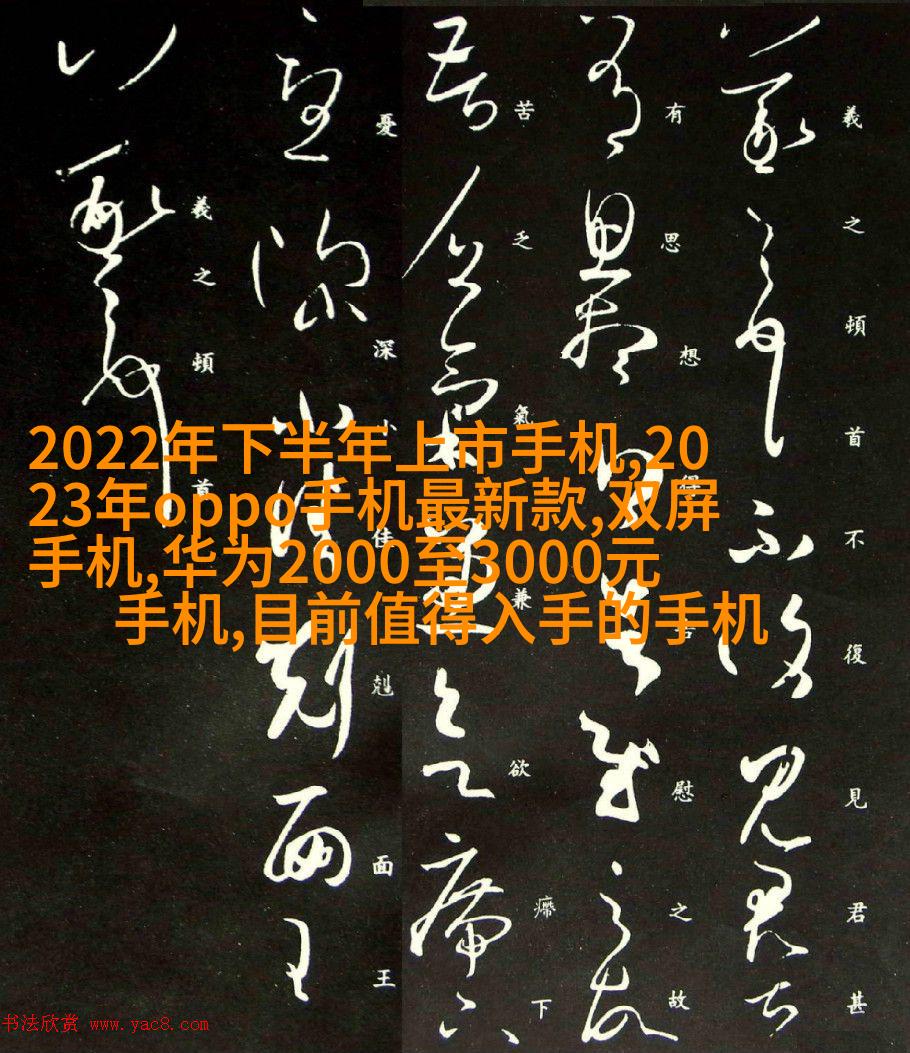 羲之頓首不復見君甚
有思想得告慰之故
苦乏氣兼欲下
憂深小佳剋面王
羲之頓首
2022年下半年上市手机,20
23年oppo手机最新款,双屏
手机,华为2000至3000元
手机,目前值得入手的手机
书法欣赏 www.yac8.com